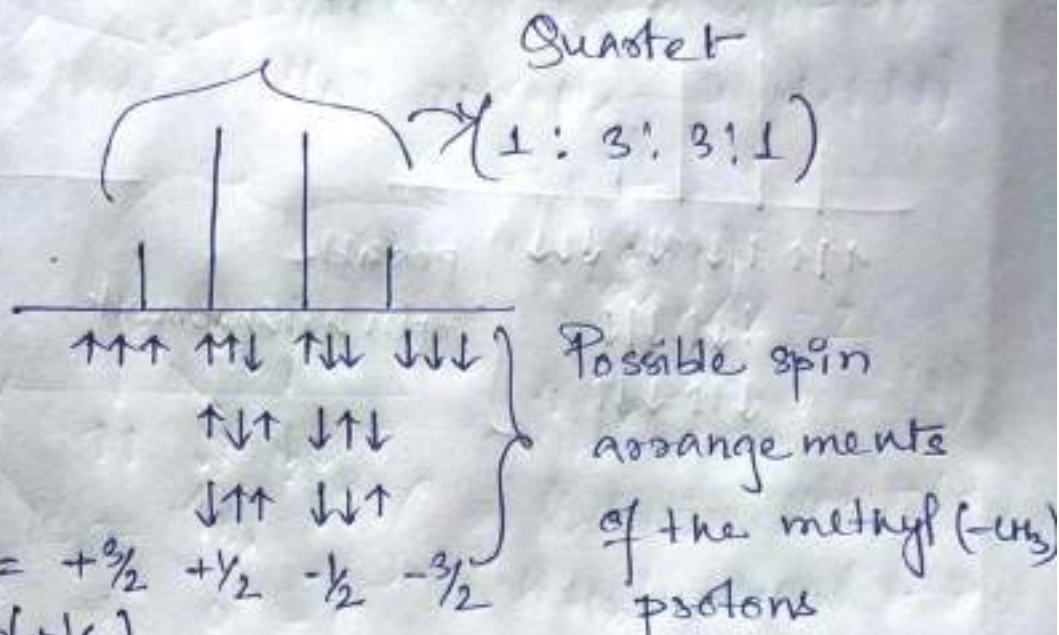 Quartet
(1 : 3 : 3 : 1)
↑↑↑ ↑↑↓ ↑↓↓ ↓↓↓
↑↓↑ ↓↑↓
↓↑↑ ↓↓↑
= +3/2 +1/2 -1/2 -3/2
Possible spin
arrangements
of the methyl (-CH3)
protons